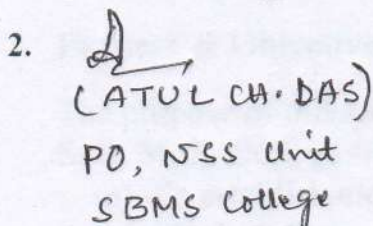 2.
(ATUL CH. DAS)
PO, NSS Unit
SBMS College